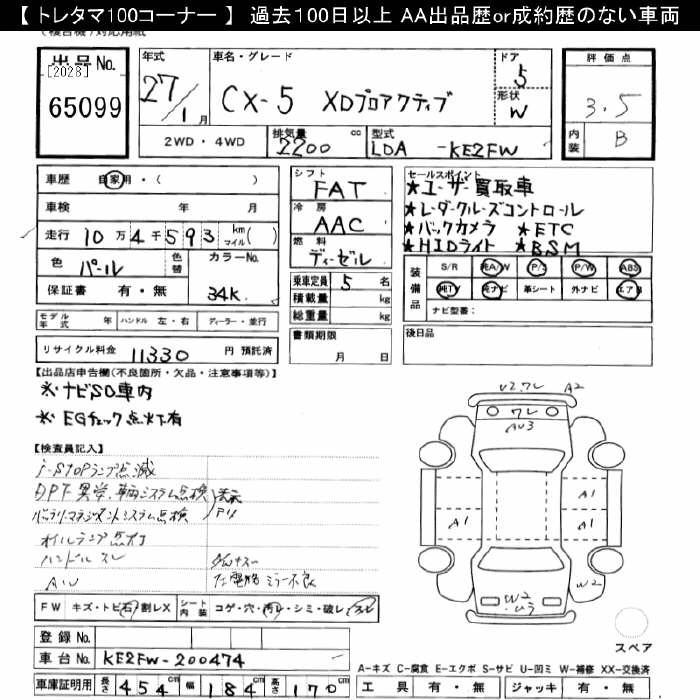 【 トレタマ100コーナー 】 過去100日以上 AA出品歴or成約歴のない車両
出品No.
[2028]
65099
年式
27/1月
車名・グレード
CX-5 XDプロアクティブ
ドア
5
形状
W
評価点
3.5
内装
B
2WD・4WD
排気量
2200cc
型式
LDA-KE2FW
車歴 自家用・( )
車検 年 月
走行 10万4千593 km マイル( )
色 パール
色替
カラーNo.
34K
保証書 有・無
シフト
FAT
冷房
AAC
燃料
ディーゼル
乗車定員 5 名
積載量 kg
総重量 kg
セールスポイント
★ユーザー買取車
★レーダークルーズコントロール
★バックカメラ ★ETC
★HIDライト ★BSM
装備品
S/R 純A/W P/S P/W ABS
純TV 純ナビ 革シート 外ナビ エアB
ナビ型番:
モデル年式 年 ハンドル 左・右 ディーラー・並行
リサイクル料金 11330 円 預託済
書類期限
月 日
後日品
【出品店申告欄(不良箇所・欠品・注意事項等)】
※ナビSD車内
※EGチェック点灯有
【検査員記入】
i-STOPランプ点滅
DPF異常、車両システム点検
表示アリ
バッテリーマネジメントシステム点検
オイルランプ点灯
ハンドルスレ
AW
左電格ミラー不良
U2.ワレ A2
ワレ
AU3
A1
A1
A1
W2
W2
U3
スペア
FW キズ・トビ石・割レX
シート内装 コゲ・穴・汚レ・シミ・破レ・スレ
登録No.
車台No. KE2FW-200474
車庫証明用 長さ 454cm 幅 184cm 高さ 170cm
A-キズ C-腐食 E-エクボ S-サビ U-凹ミ W-補修 XX-交換済
工具 有・無 ジャッキ 有・無